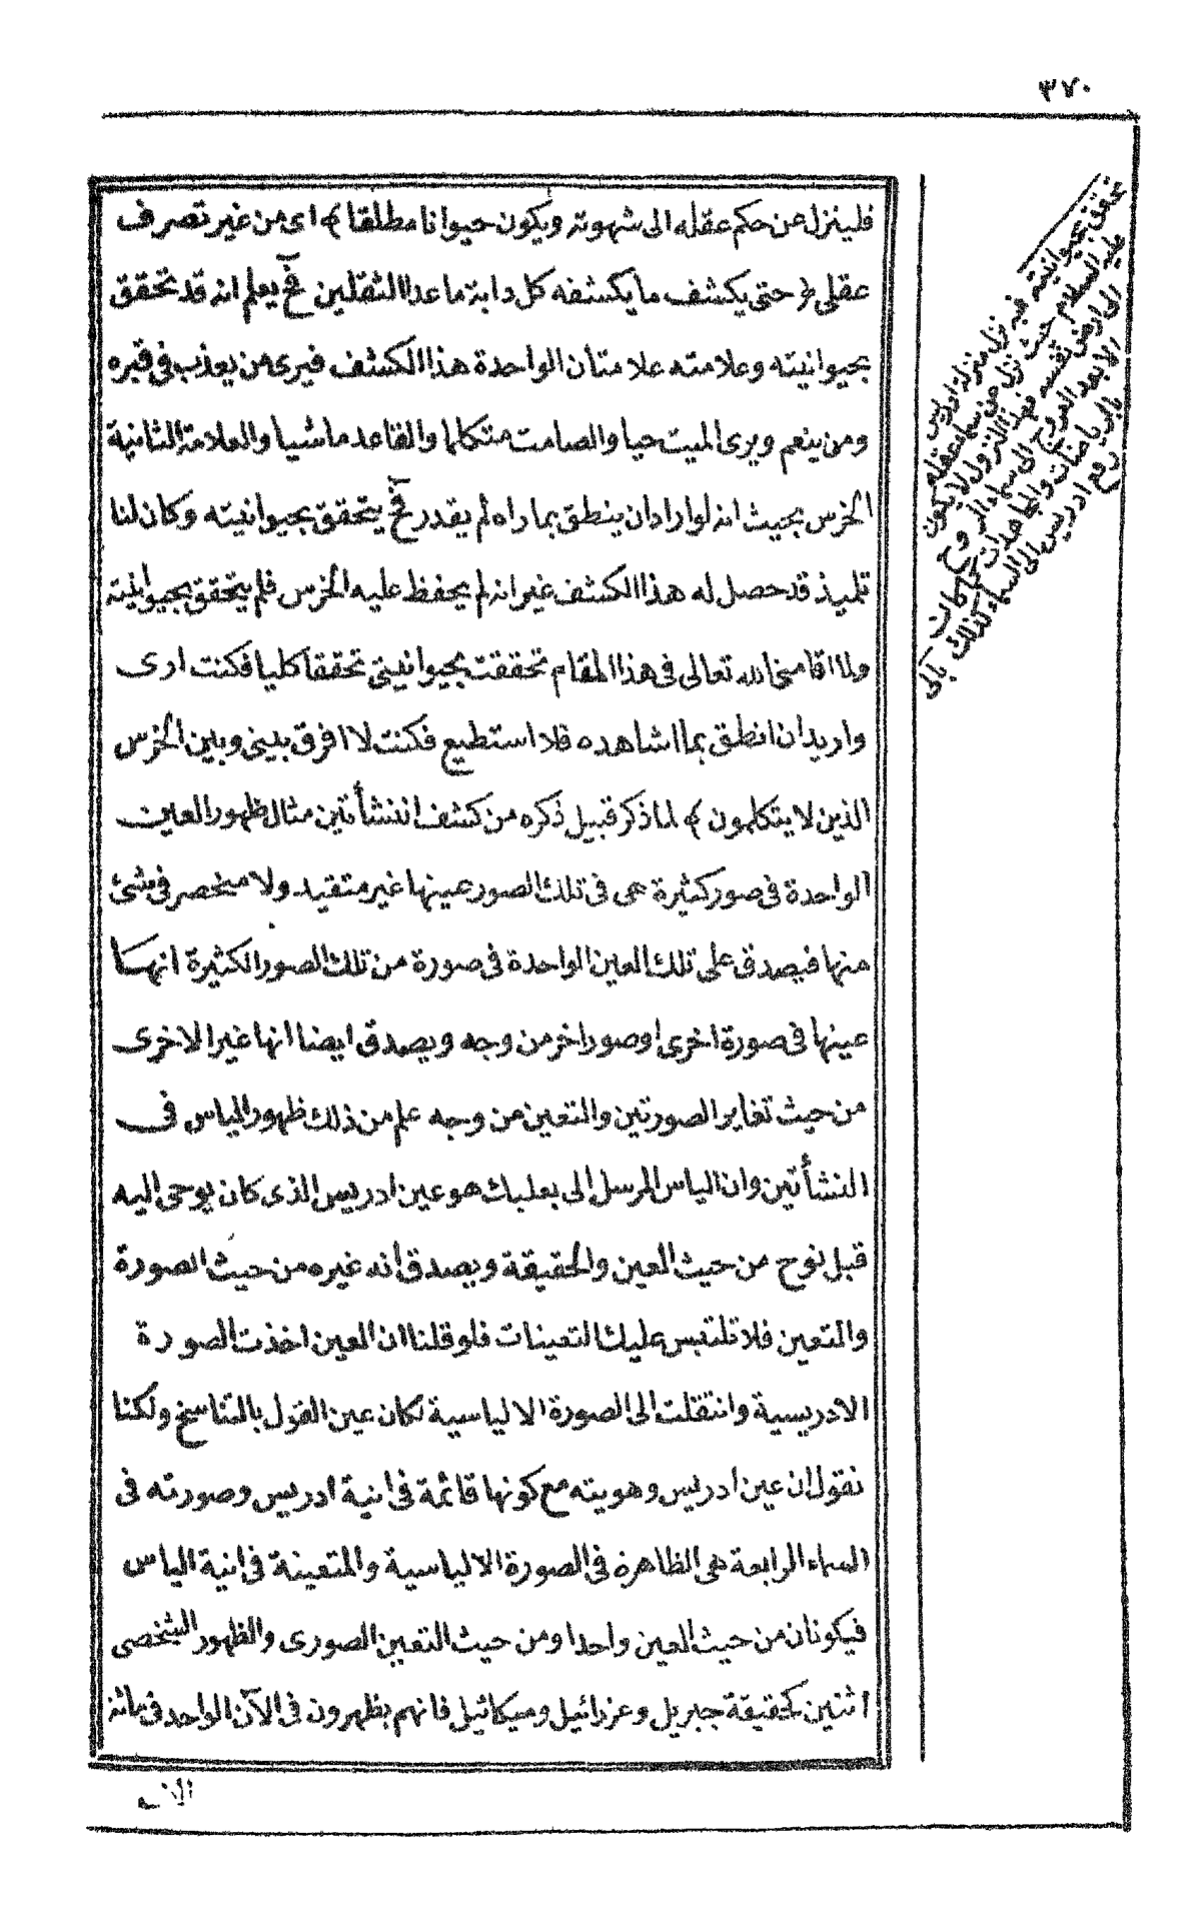 ٣٧٠
فلينزل عن حكم عقله الى شهوته ويكون حيوانا مطلقا ﴾ اى من غير تصرف
عقلى ﴿ حتى يكشف ما يكشفه كل دابة ما عدا الثقلين فح يعلم انه قد تحقق
بحيوانيته وعلامته علامتان الواحدة هذا الكشف فيرى من يعذب فى قبره
ومن ينعم ويرى الميت حيا والصامت متكلما والقاعد ماشيا والعلامة الثانية
الخرس بحيث انه لو اراد ان ينطق بما راه لم يقدر فح يتحقق بحيوانيته وكان لنا
تلميذ قد حصل له هذا الكشف غير انه لم يحفظ عليه الخرس فلم يتحقق بحيوانيته
ولما اقامنى الله تعالى فى هذا المقام تحققت بحيوانيتى تحققا كليا فكنت ارى
واريد ان انطق بما اشاهده فلا استطيع فكنت لا افرق بينى وبين الخرس
الذين لا يتكلمون ﴾ لما ذكر قبيل ذكره من كشف النشأتين مثال ظهور العين
الواحدة فى صور كثيرة هى فى تلك الصور عينها غير متقيد ولا منحصر فى شئ
منها فيصدق على تلك العين الواحدة فى صورة من تلك الصور الكثيرة انها
عينها فى صورة اخرى او صور اخر من وجه ويصدق ايضا انها غير الاخرى
من حيث تغاير الصورتين والتعين من وجه علم من ذلك ظهور الياس فى
النشأتين وان الياس المرسل الى بعلبك هو عين ادريس الذى كان يوحى اليه
قبل نوح من حيث العين والحقيقة ويصدق أنه غيره من حيث الصورة
والتعين فلا تلتبس عليك التعينات فلو قلنا ان العين اخذت الصورة
الادريسية وانتقلت الى الصورة الالياسية لكان عين القول بالتناسخ ولكنا
نقول ان عين ادريس وهويته مع كونها قائمة فى انية ادريس وصورته فى
السماء الرابعة هى الظاهرة فى الصورة الالياسية والمتعينة فى انية الياس
فيكونان من حيث العين واحدا ومن حيث التعين الصورى والظهور الشخصى
اثنين كحقيقة جبريل وعزرائيل وميكائيل فانهم يظهرون فى الآن الواحد فى مائة
الف
تحقق بحيوانيته فبه نزل منزلة ادريس
عليه السلام حيث نزل من سماء عقله
الى ارض نفسه فهذا النزول لا يكون
الا بعد العروج الى سماء الروح
بالرياضات والمجاهدات كما كانت
رفع ادريس الى السماء كذلك بالى